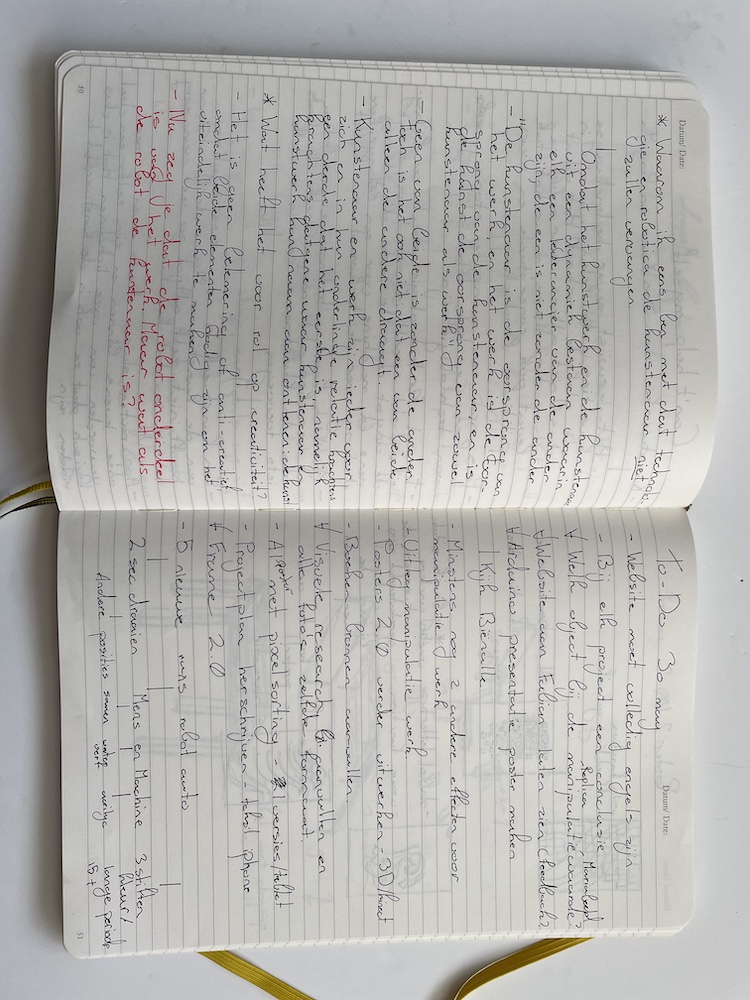 Datum/ Date:
* Waarom ik eens ben met dat technolo-
gie en robotica de kunstenaar niet
zullen vervangen.
Omdat het kunstwerk en de kunstenaar
uit een dynamiek bestaan waarin
elk een leverancier van de ander
zijn, de een is niet zonder de ander
- "De kunstenaar is de oorsprong van
het werk, en het werk is de oor-
sprong van de kunstenaar, en is
de kunst de oorsprong van zowel
kunstenaar als werk".
- Geen van beide is zonder de ander.
Toch is het ook niet dat een van beide
alleen de andere draagt.
- Kunstenaar en werk zijn ieder voor
zich en in hun onderlinge relatie krachtens
een derde dat het eerste is, namelijk
krachtens datgene waar kunstenaar en
kunstwerk hun naam aan ontlenen: de kunst
* Wat heeft het voor rol op creativiteit?
- Het is geen belemering of anti-creatief,
omdat beide elementen nodig zijn om het
uiteindelijk werk te maken.
- Nu zeg je dat de robot onderdeel
is van het werk. Maar wat als
de robot de kunstenaar is?
50
Datum/ Date:
To-Do 30 may
- Website moet volledig engels zijn
- Bij elk project een conclusie
Replica - Mariabeeld
Welk object bij de manipulatiewaarde?
Website aan Fabian laten zien (feedback?
Arduino presentatie poster maken
Kijk Biënalle
- Minstens nog 2 andere effecten voor
manipulatie werk
- Uitleg manipulatie werk.
- Posters 2.0 verder uitwerken - 3D/kinect
- Boeken bronnen aanvullen.
Visuele research aanvullen en
alle foto's zelfde formaat.
- A1 poster met pixel sorting - 1 versies/tablet
- Projectplan herschrijven - tekst iphone
Frame 2.0
- 5 nieuwe runs robot auto
2 sec draaien Mens en Machine 3 stiften
kleur/
Andere posities samen water verf acrilyc lange periode
15 +
51